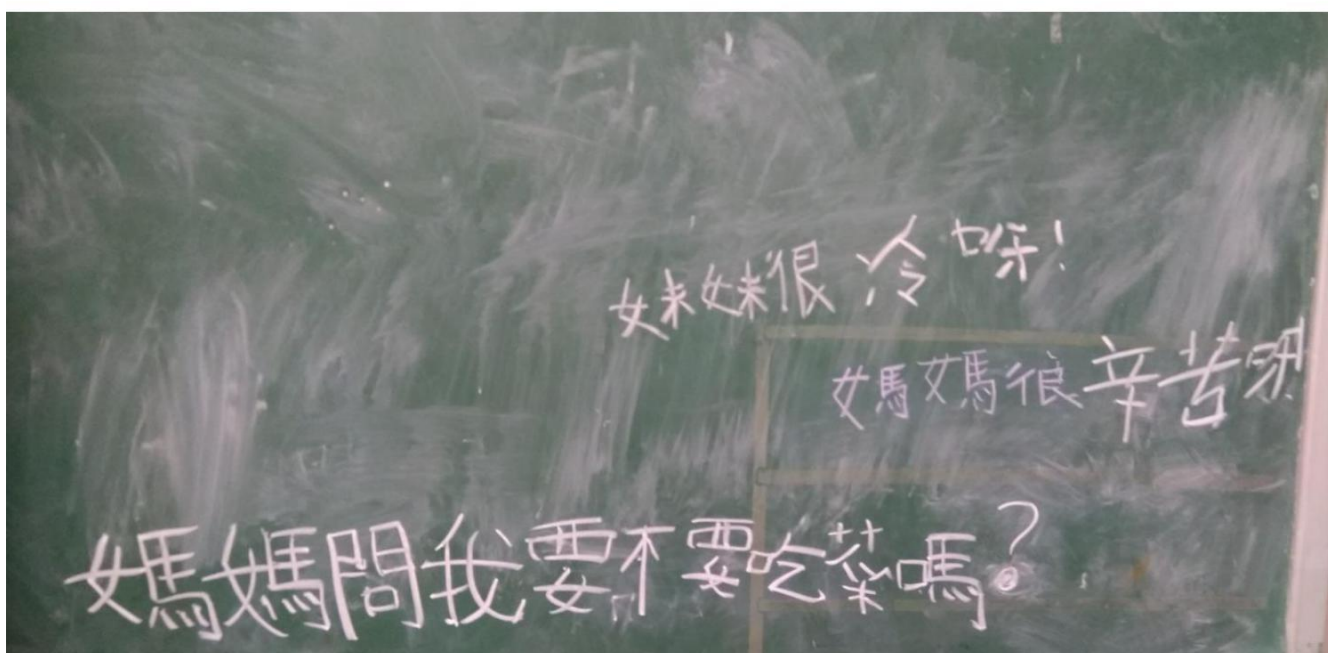 妹妹很冷呀!
媽媽很辛苦呀
媽媽問我要不要吃菜嗎?